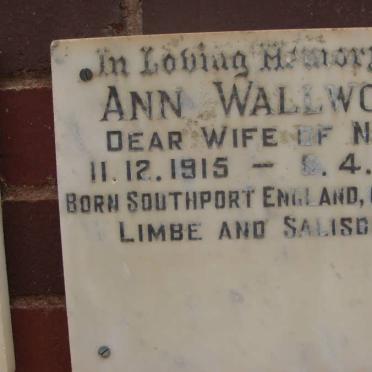 In Loving Memor
ANN WALLWO
DEAR WIFE OF N
11.12.1915 - . 4.
BORN SOUTHPORT ENGLAND,
LIMBE AND SALISB